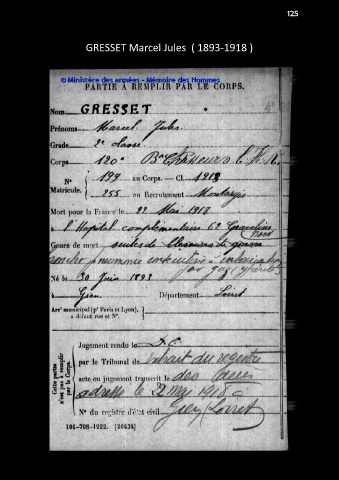 125
GRESSET Marcel Jules ( 1893-1918 )
© Ministère des armées - Mémoire des Hommes
PARTIE A REMPLIR PAR LE CORPS.
Nom GRESSET
Prénoms Marcel Jules
Grade 2e classe
Corps 120e Bon Chasseurs
N° Matricule. 199 au Corps. — Cl. 1913
255 au Recrutement Montargis
Mort pour la France le 22 Mai 1918
à l'Hôpital complémentaire 62 Gravelines Nord
Genre de mort suites de blessures de guerre
broncho pneumonie consécutive à intoxication
par gaz
Né le 30 Juin 1893
à Gien Département Loiret
Arrt municipal (pr Paris et Lyon), à défaut rue et N°.
Cette partie n'est pas à remplir par le Corps.
Jugement rendu le
par le Tribunal de extrait du registre
acte ou jugement transcrit le des
adressé le 22 mai 1918
à Gien Loiret
N° du registre d'état civil
101-708-1922. [26434]